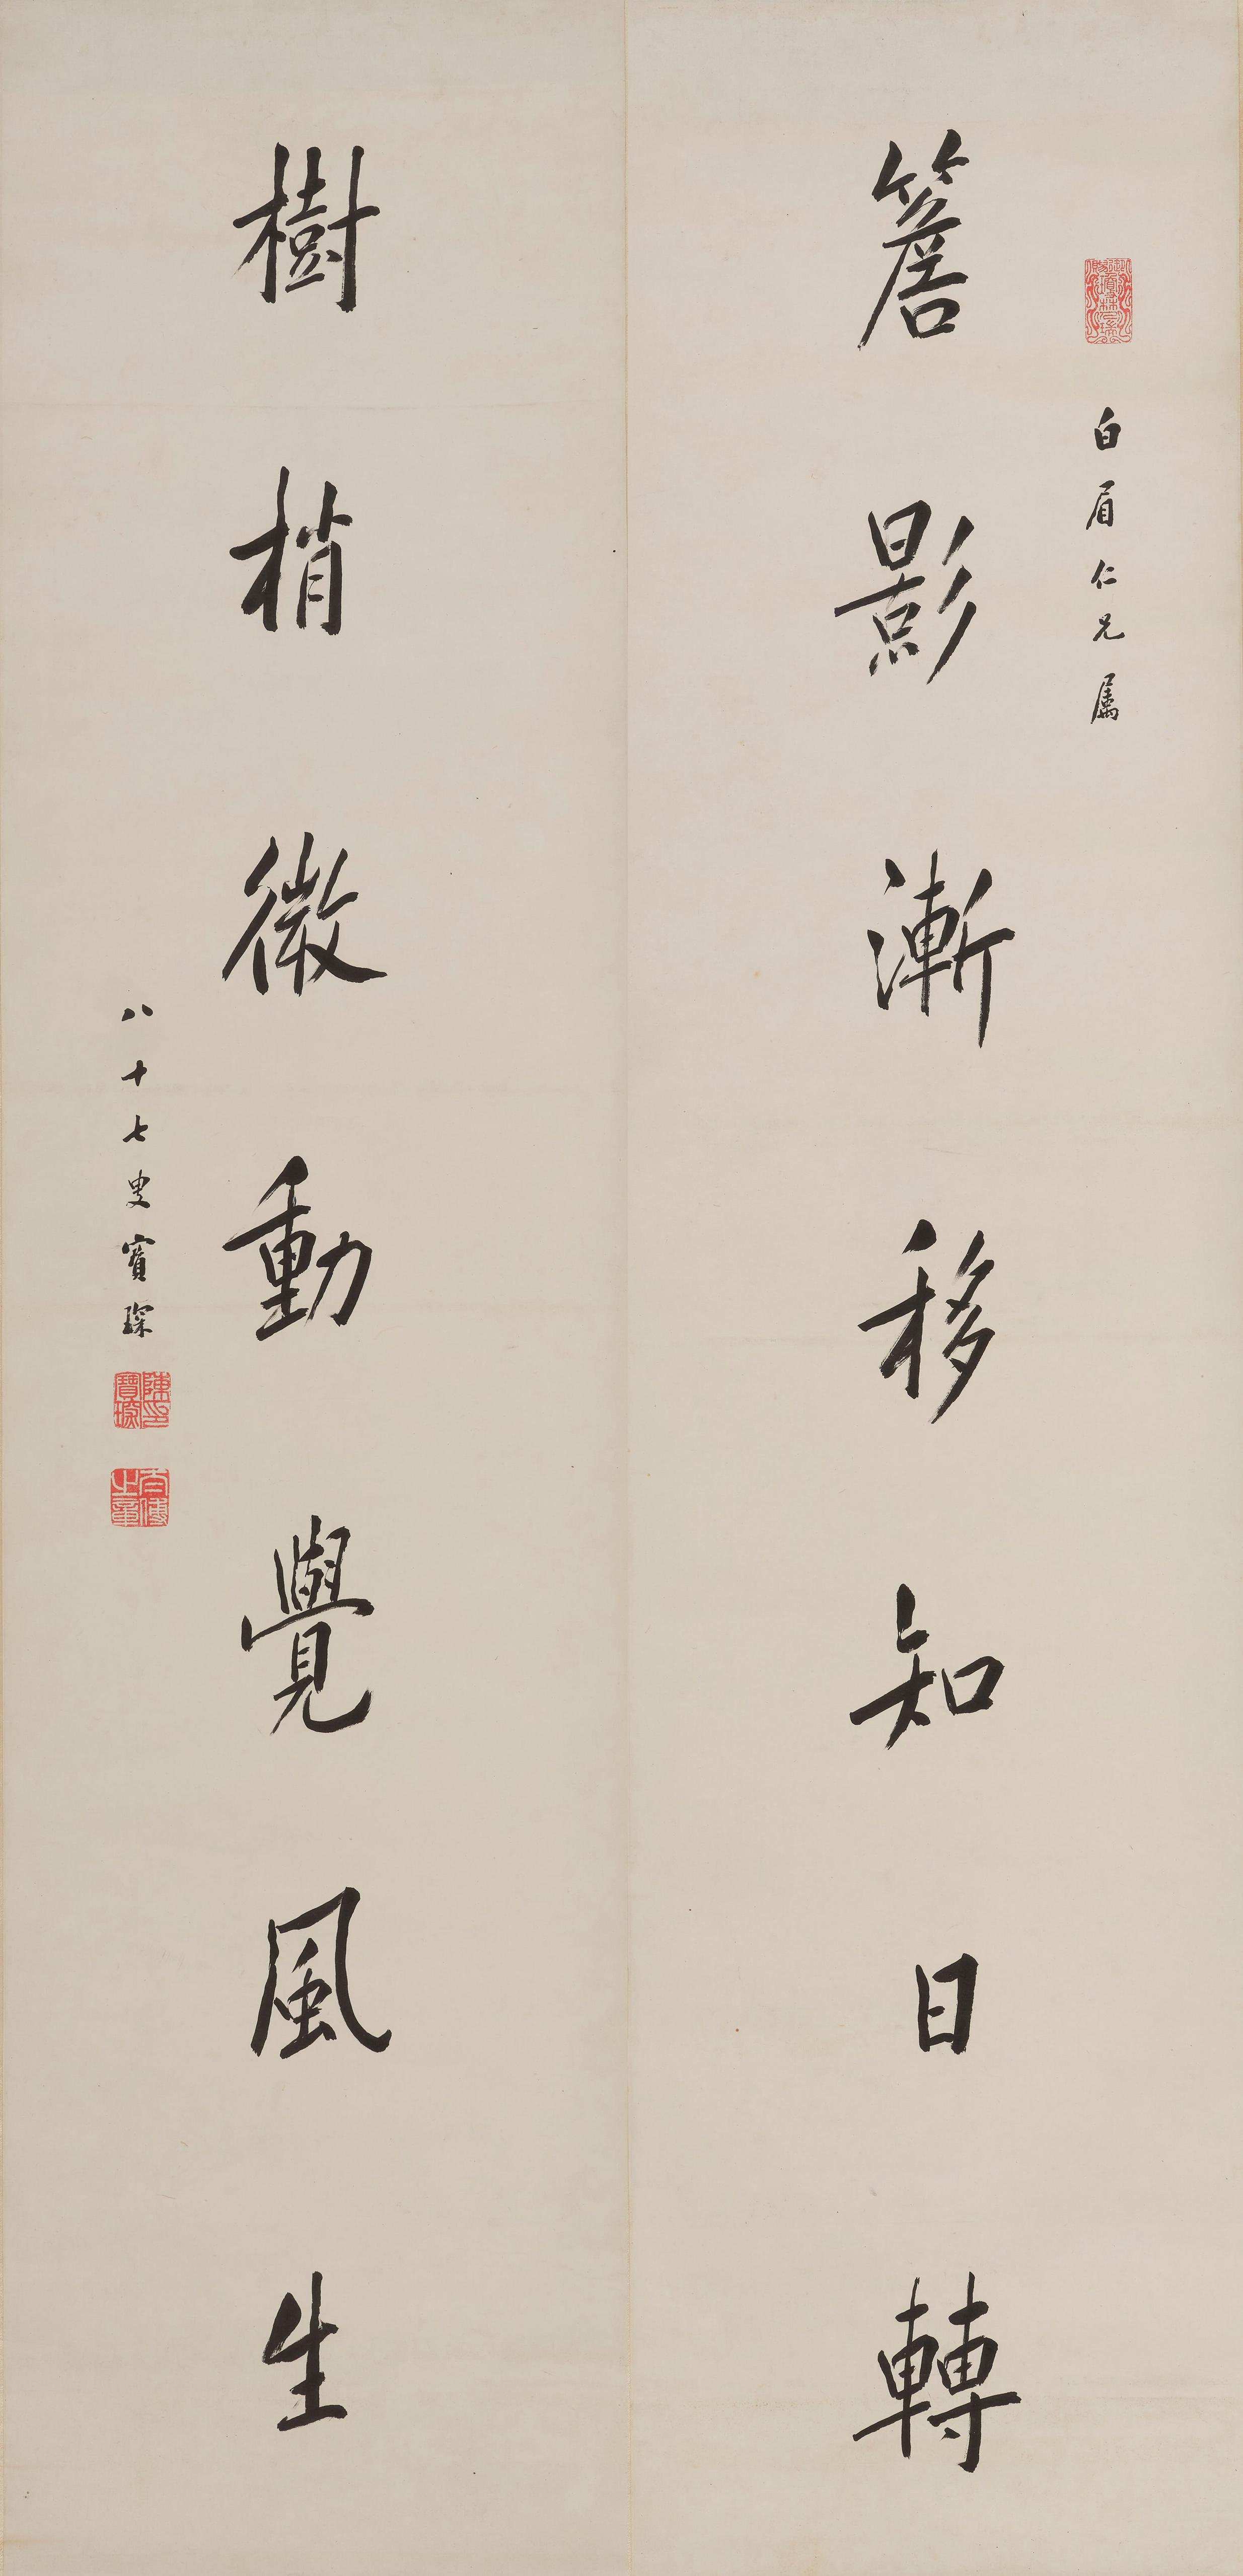 白眉仁兄属
簷影漸移知日轉
樹梢微動覺風生
八十七叟寶琛
陳印寶琛
太傅之章